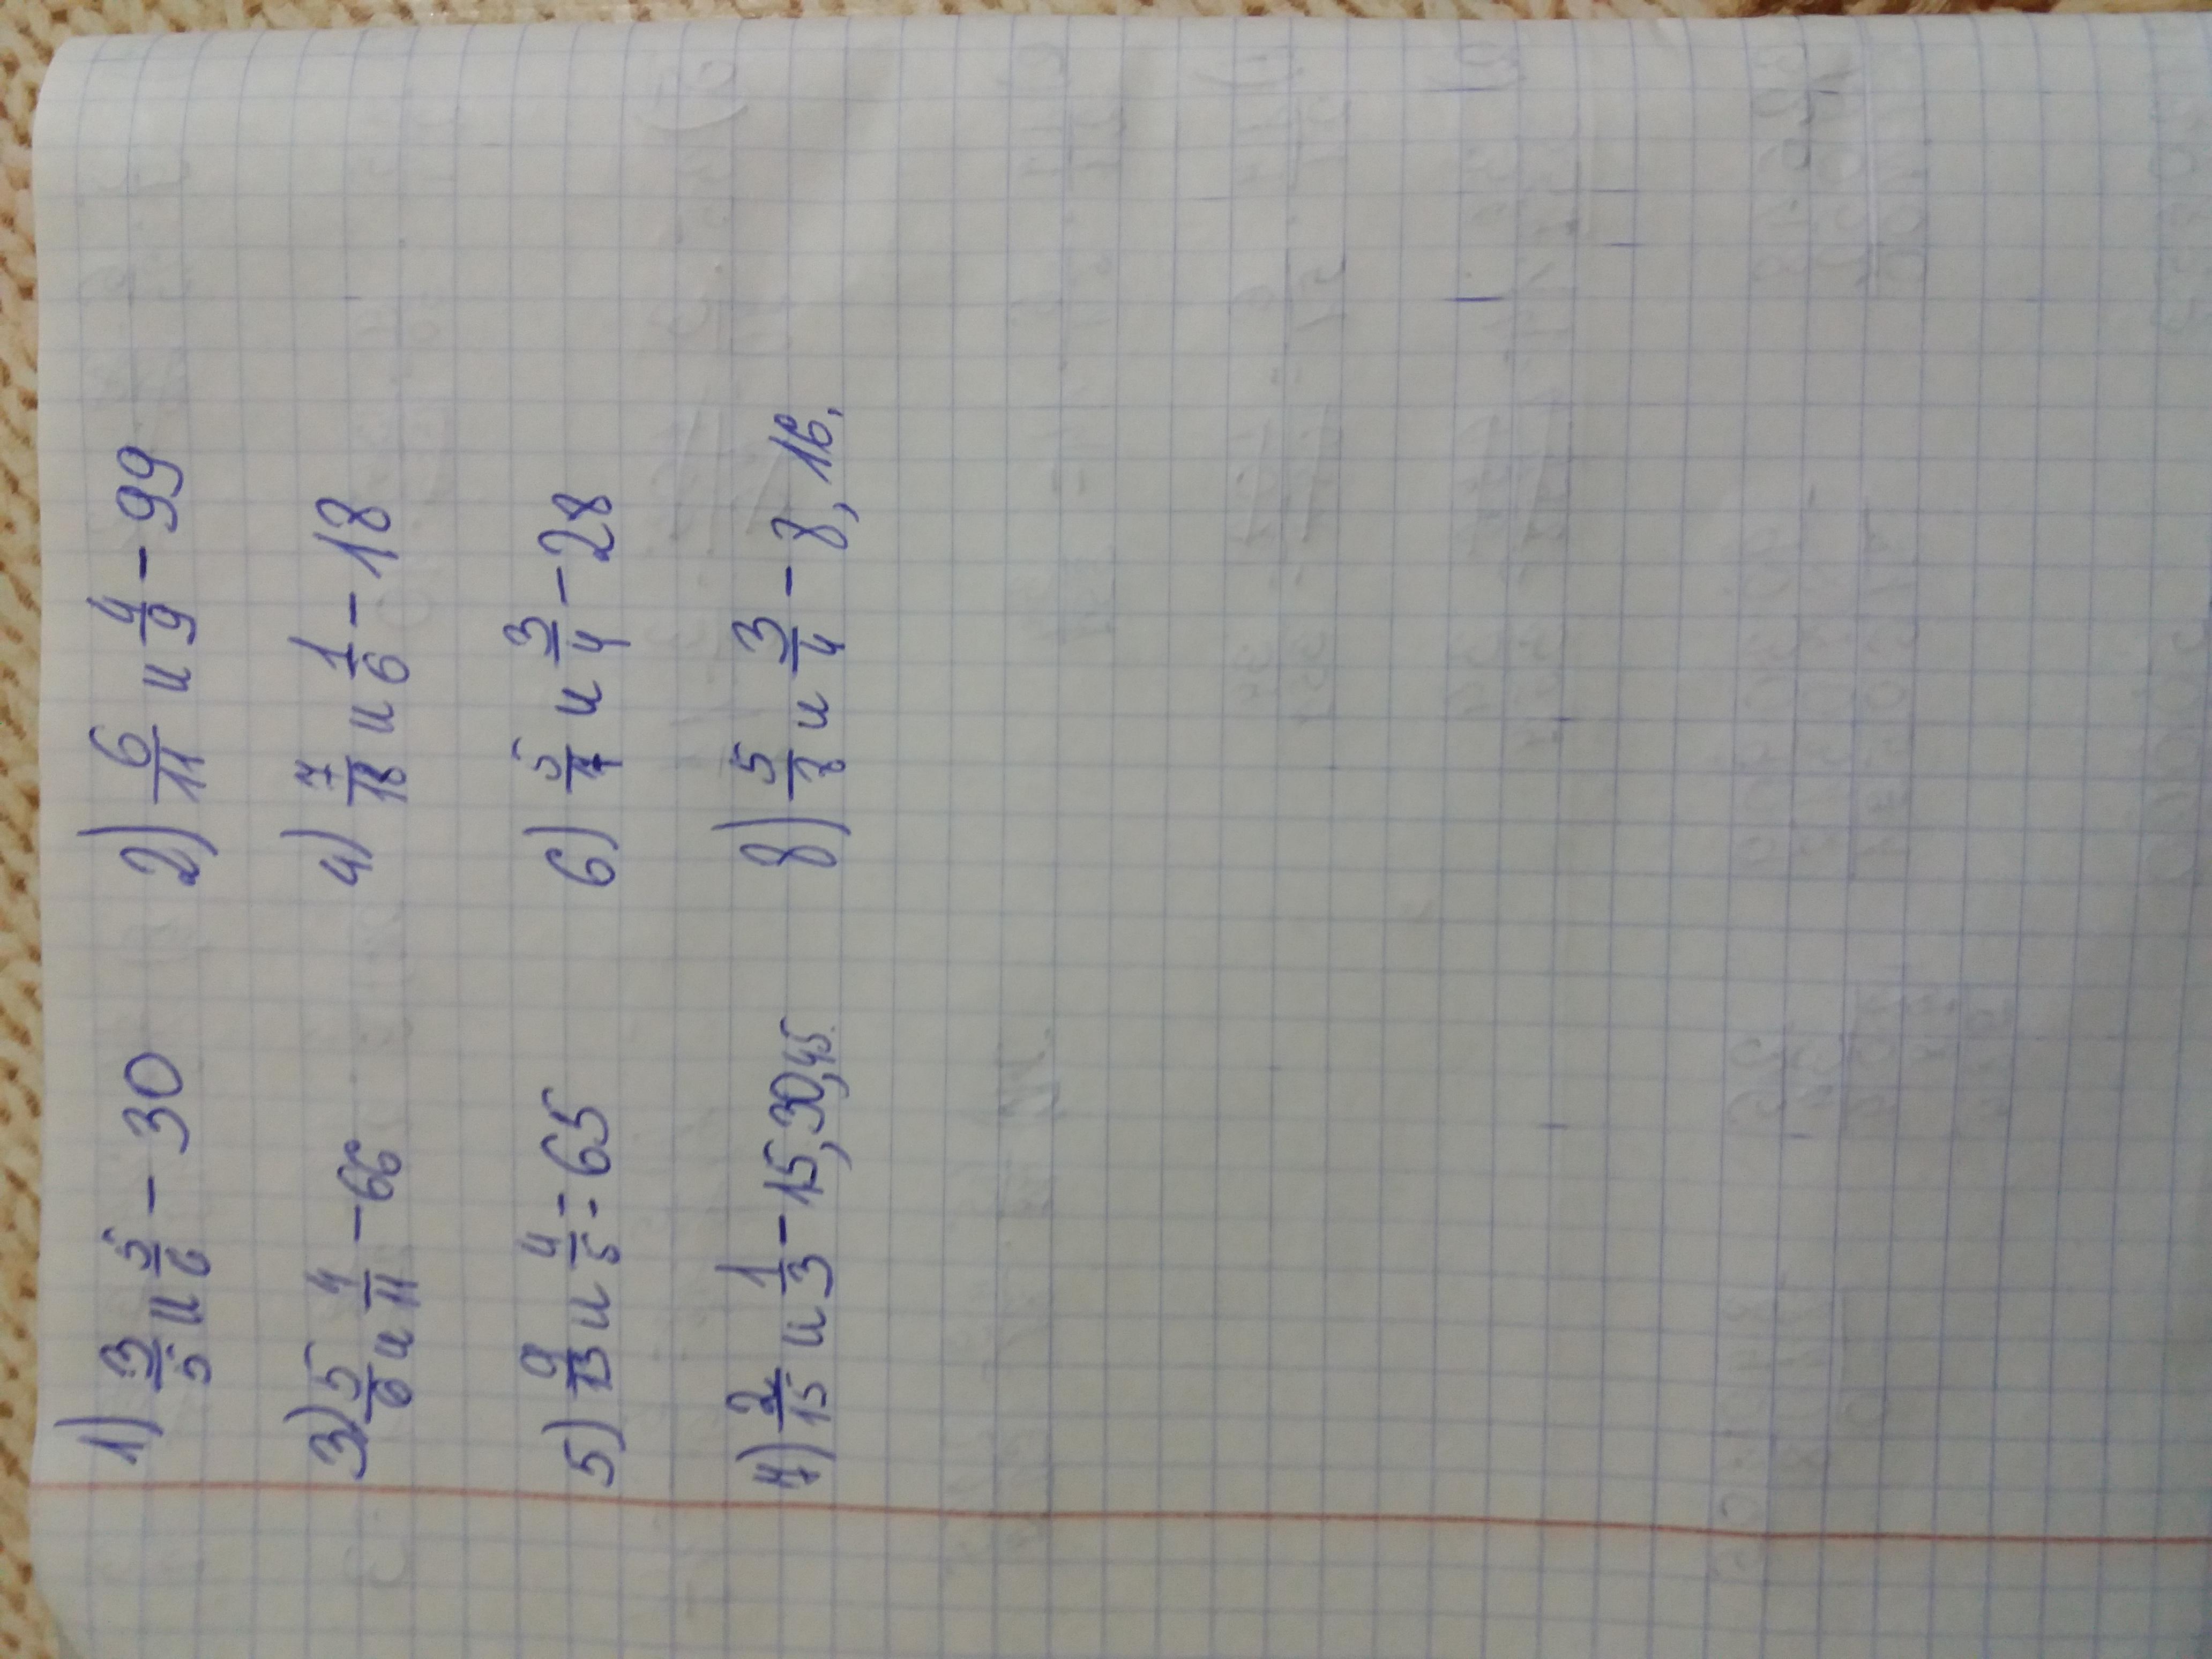 1) 3/5 и 5/6 – 30 2) 6/11 и 4/9 – 99
3) 5/6 и 4/11 – 66 4) 7/18 и 1/6 – 18
5) 9/13 и 4/5 = 65 6) 5/7 и 3/4 – 28
7) 2/15 и 1/3 – 15, 30, 45 8) 5/8 и 3/4 – 8, 16,